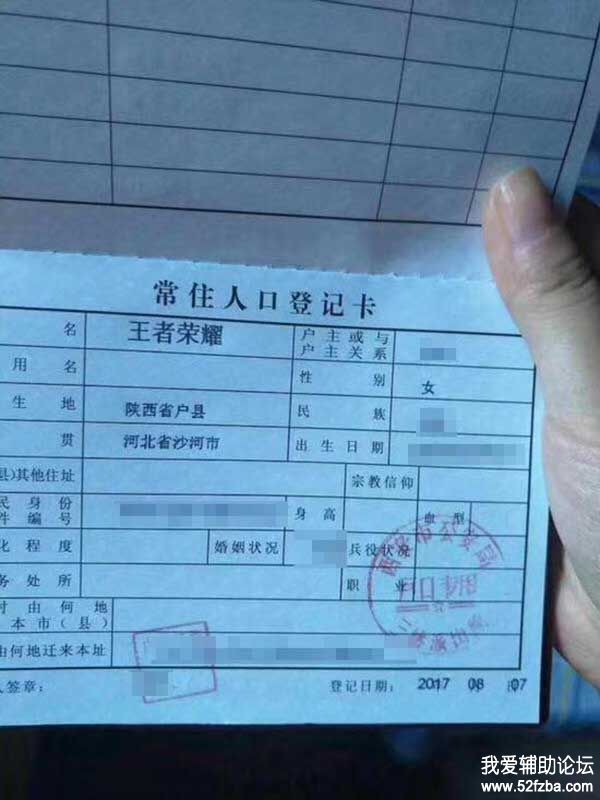 常住人口登记卡
名 王者荣耀 户主或与户主关系
用名 性别 女
生地 陕西省户县 民族
贯 河北省沙河市 出生日期
县)其他住址 宗教信仰
民身份件编号 身高 血型
化程度 婚姻状况 兵役状况
务处所 职业
时由何地
本市(县)
由何地迁来本址
人签章: 登记日期: 2017 08 07
我爱辅助论坛
www.52fzba.com